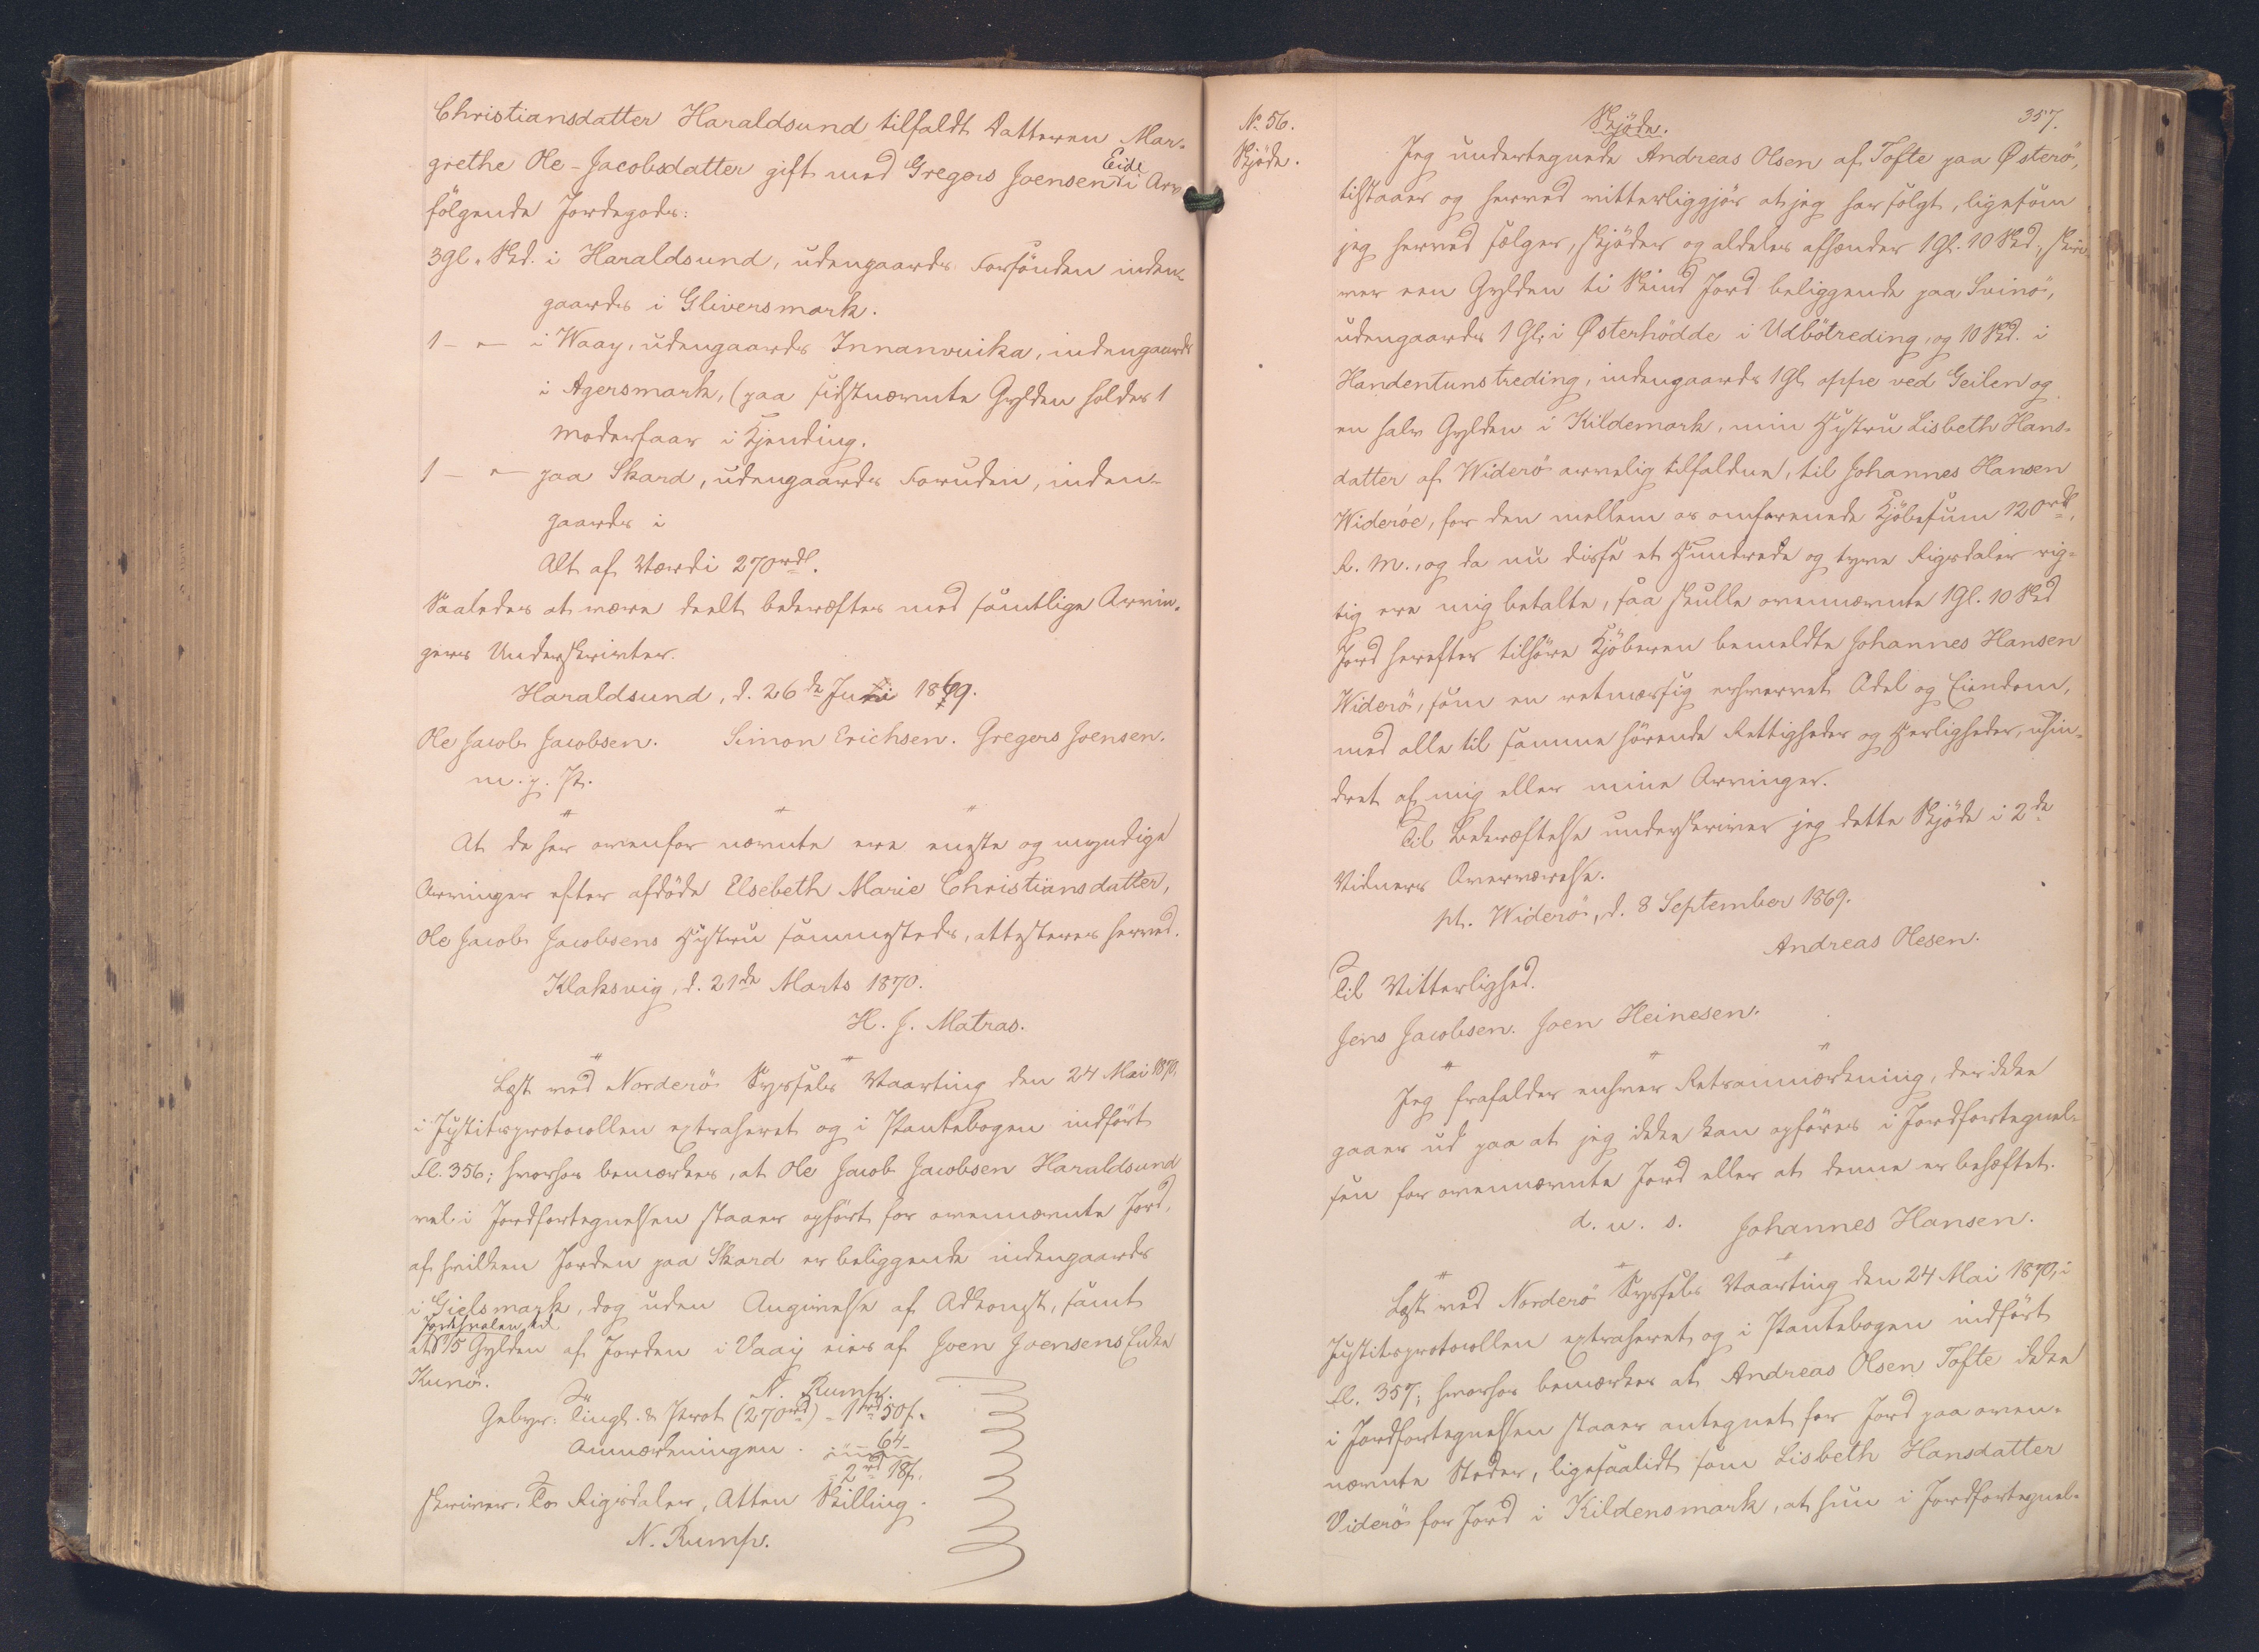 Christiansdatter Haraldsund tilfaldt Datteren Mar-
grethe Ole-Jacobsdatter gift med Gregers Joensen Eide i Arv
følgende Jordegods:
3 Gl. Skd. i Haraldsund, udengaards Forsönden inden-
gaards i Gliversmark.
1 — " — i Waay, udengaards Innanvuika, indengaards
i Agersmark, (paa sidstnævnte Gylden holdes 1
Moderfaar i Hjending.
1 — " — paa Skard, udengaards Foruden, inden-
gaards i
Alt af Værdi 270 rdl.
Saaledes at være deelt bekræftes med samtlige Arvin-
gers Underskrivter.
Haraldsund, d. 26de Juni 1869.
Ole Jacob Jacobsen. Simon Erichsen. Gregers Joensen.
m. p. P.
At de her ovenfor nævnte ere eneste og myndige
Arvinger efter afdöde Elsebeth Marie Christiansdatter,
Ole Jacob Jacobsens Hustru sammesteds, attesteres herved.
Klaksvig, d. 21de Marts 1870.
H. J. Matras.
Læst ved Norderö Syssels Vaarting den 24 Mai 1870,
i Justitsprotocollen extraheret og i Pantebogen indfört
Fl. 356; hvorhos bemærkes, at Ole Jacob Jacobsen Haraldsund
vel i Jordfortegnelsen staaer opfört for ovennævnte Jord,
af hvilken Jorden paa Skard er beliggende indengaards
i Gielsmark, dog uden Angivelse af Adkomst, samt
at 15 Gylden af Jorden i Vaaij eies af Joen Joensens Enke
Kunö.
N. Rump.
Gebyr: Tingl. & Prot. (270 rd) - 1 rd 50 s.
Anmærkningen . - " - 64 -
2 rd 18 s.
skriver. To Rigsdaler, Atten Skilling.
N. Rump.
No. 56.
Skjöde.
357.
Skjöde.
Jeg undertegnede Andreas Olsen af Tofte paa Österö,
tilstaaer og herved vitterliggjör at jeg har solgt, ligesom
jeg herved sælger, skjöder og aldeles afhænder 1 Gl. 10 Skd., skri-
ver een Gylden ti Skind Jord beliggende paa Svinö,
udengaards 1 Gl. i Österhödde i Udbötreding, og 10 Skd. i
Handentunstreding, indengaards 1 Gl. oppe ved Geilen og
en halv Gylden i Kildemark, min Hustru Lisbeth Hans-
datter af Widerö arvelig tilfalden, til Johannes Hansen
Wideröe, for den mellem os omforenede Kjöbesum 120 rdl,
R. M., og da nu disse et Hundrede og tyve Rigsdaler rig-
tig ere mig betalte, saa skulle ovennævnte 1 Gl. 10 Skd
Jord herefter tilhöre Kjöberen bemeldte Johannes Hansen
Widerö, som en retmæssig erhvervet Odel og Eiendom,
med alle til samme hörende Rettigheder og Herligheder, uhin-
dret af mig eller mine Arvinger.
Til Bekræftelse underskriver jeg dette Skjöde i 2de
Vidners Overværelse.
pt. Widerö, d. 8 September 1869.
Andreas Olesen.
Til Vitterlighed.
Jens Jacobsen. Joen Heinesen.
Jeg frafalder enhver Retsanmærkning, der ikke
gaaer ud paa at jeg ikke kan opföres i Jordfortegnel-
sen for ovennævnte Jord eller at denne er behæftet.
d. u. s. Johannes Hansen.
Læst ved Norderö Syssels Vaarting den 24 Mai 1870, i
Justitsprotocollen extraheret og i Pantebogen indfört
Fl. 357; hvorhos bemærkes at Andreas Olsen Tofte ikke
i Jordfortegnelsen staaer antegnet for Jord paa oven-
nævnte Steder, ligesaalidt som Lisbeth Hansdatter
Viderö for Jord i Kildensmark, at hun i Jordfortegnel-